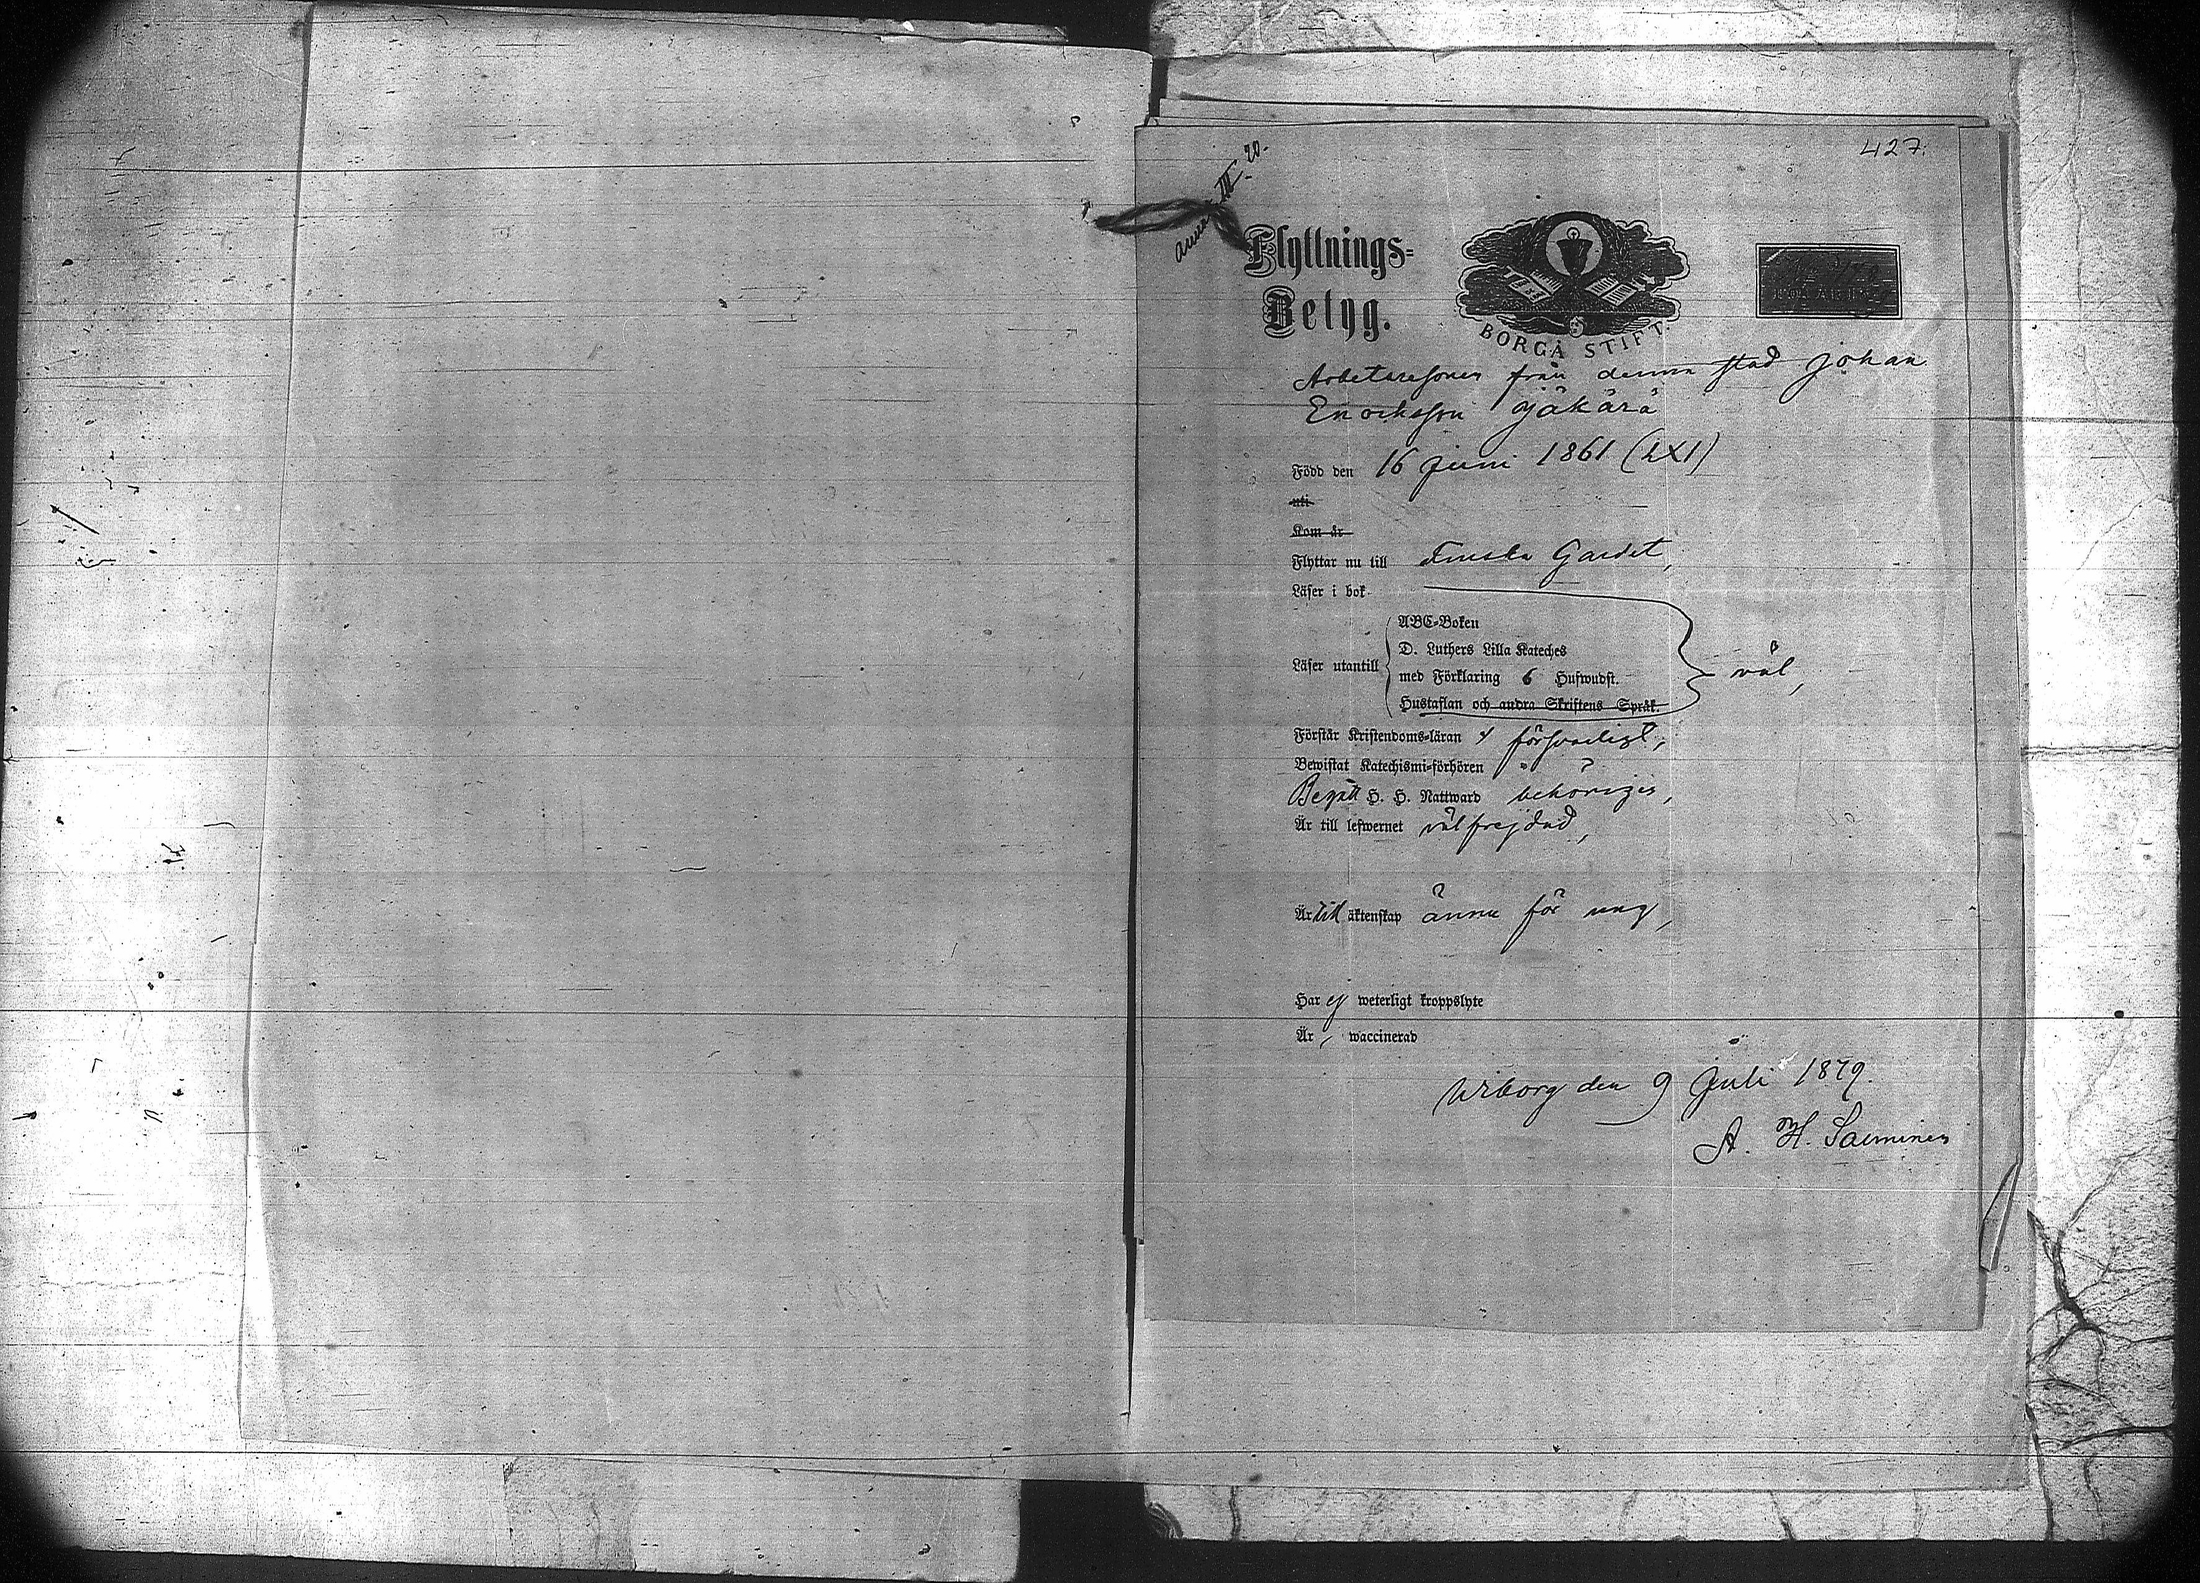 427.
III. 20.
Flyttnings=
Betyg.
BORGÅ STIFT.
Arbetaresonen från denna stad Johan
Enochsson Jäkärä
Född den 16 Juni 1861 (LXI)
uti
Kom år
Flyttar nu till Finska Gardet,
Läser i bok
Läser utantill
ABC-Boken
D. Luthers Lilla Kateches
med Förklaring 6 Hufwudst.
Hustaflan och andra Skriftens Språk.
väl,
Förstår Kristendoms-läran försvarligt,
Bewistat Katechismi-förhören "
Begått H. H. Nattward behörigen,
Är till lefwernet välfrejdad,
Är till äktenskap ännu för ung,
Har ej weterligt kroppslyte
Är, waccinerad
Wiborg den 9 Juli 1879.
A. H. Saeminen